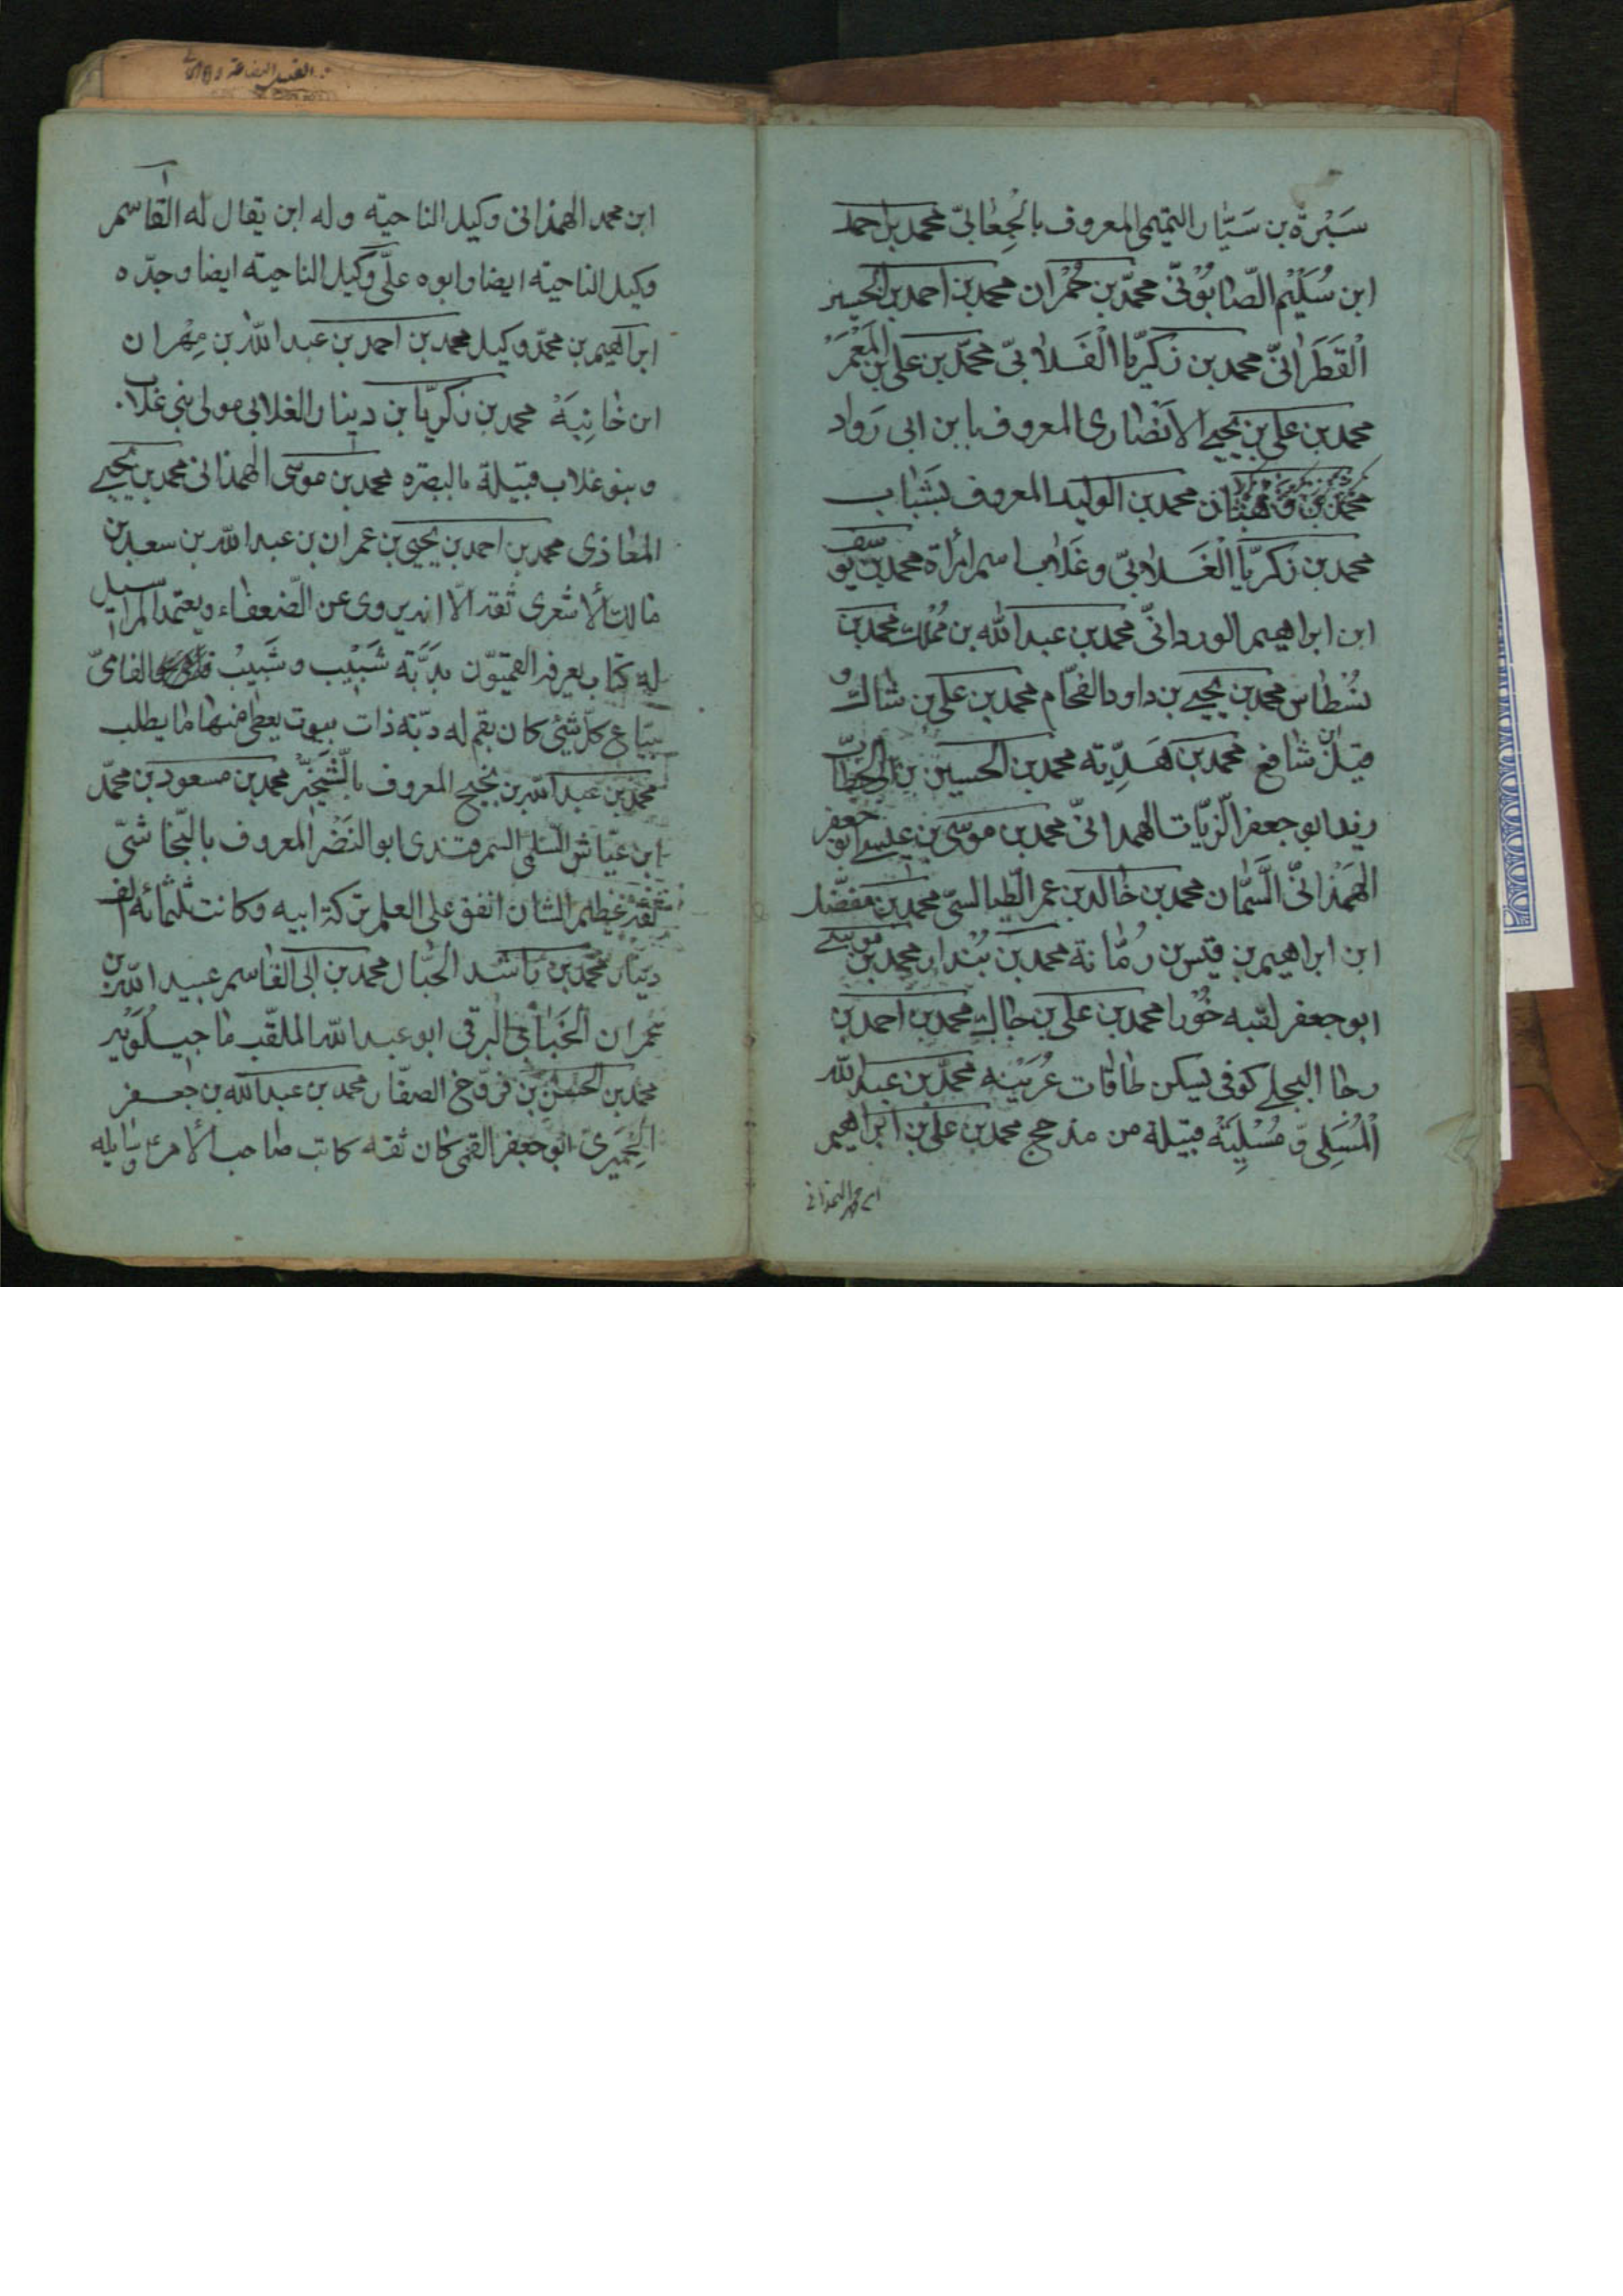 سَبْرَة بن سَيّار التميمى المعروف بالجِعٰابىّ محمد بن احمد
ابن سُلَيْم الصّابُوْنىّ محمّد بن حُمْران محمد بن احمد بن الحسين
الْقَطَرٰانىّ محمد بن زكريّا الْغَلابىّ محمّد بن على بن المَعْمَر
محمد بن على بن يحيى الانْصٰارى المعروف بابن ابى رَواد
محمد بن وَهْبٰان محمد بن الوليد المعروف بشَبٰاب
محمد بن زكريّا الْغَلابىّ وغَلاب اسم امرأة محمد بن يوسف
ابن ابراهيم الوردانىّ محمد بن عبد الله بن مُمْلك محمد بن
نُسْطاس محمد بن يحيى بن داود الفحّام محمد بن على بن شاك
قيل ان شافع محمد بن هَدِيّه محمد بن الحسين بن ابى الخطّاب
زيد ابو جعفر الزيّات الهمدانىّ محمد بن موسى بن عيسى ابو جعفر
الهَمْدٰانىّ السَّمّان محمد بن خالد بن عمر الطّيالسىّ محمد بن مفضّل
ابن ابراهيم بن قيس بن رُمّانة محمد بن بُنْدار محمد بن موسى
ابو جعفر لقبه خُوْرا محمد بن على بن جاك محمد بن احمد بن
رحا البجلى كوفى يسكن طاقات عُرَيْنه محمّد بن عبد الله
الْمُسْلى ومُسْلِيَه قبيلة من مذحج محمد بن على بن ابراهيم
ابن محمد الهمذانى
ابن محمد الهمذانى وكيل الناحية وله ابن يقال له القاسم
وكيل الناحية ايضا وابوه علىّ وكيل الناحية ايضا وجدّه
ابراهيم بن محمّد وكيل محمد بن احمد بن عبد الله بن مِهْران
ابن خٰانِبَهْ محمد بن زكريّا بن دينار الغلابى مولى بنى غلاب
وبنو غلاب قبيلة بالبصره محمد بن موسى الهمدانى محمد بن يحيى
المعاذى محمد بن احمد بن يحيى بن عمران بن عبد الله بن سعد بن
مالك الأشعرى ثقة الّا انه يروى عن الضعفاء ويعتمد المراسيل
له كتاب يعرفه القميّون بدَبَّة شَبيب وشَبيبْ الفامىّ
بيّاع كلّ شئ كان بقم له دبّة ذات بيوت يعطى منها ما يطلب
محمّد بن عبد الله بن نجيح المعروف بالشّخير محمد بن مسعود بن محمّد
ابن عيّاش السّلمى السمرقندى ابو النَضْر المعروف بالعيّاشىّ
ثقة عظيم الشان انفق على العلم تركة ابيه وكانت ثلثمائه الف
دينار محمّد بن باشد الحبّال محمد بن ابى القاسم عبيد الله بن
عمران الخَبّابى البرقى ابو عبد الله الملقّب ماجيلُوَيْه
محمد بن الحسن بن فرّوخ الصفّار محمد بن عبد الله بن جعفر
الحِمْيَرى ابو جعفر القمى كان ثقة كاتب صاحب الأمر ع وسأله